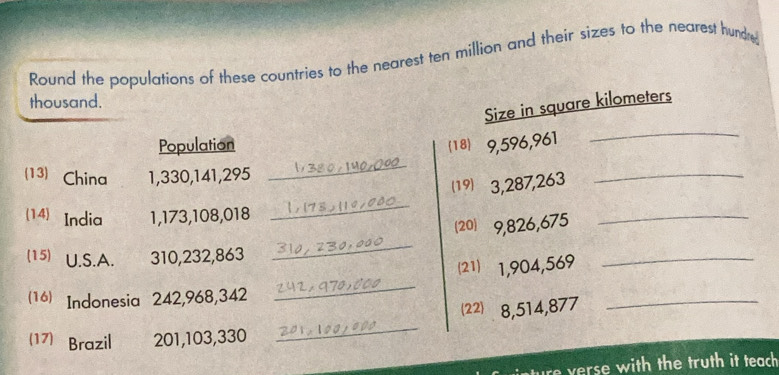 Round the populations of these countries to the nearest ten million and their sizes to the nearest hundred
thousand.
Population
(13) China 1,330,141,295 1,330,140,000
(14) India 1,173,108,018 1,173,110,000
(15) U.S.A. 310,232,863 310,230,000
(16) Indonesia 242,968,342 242,970,000
(17) Brazil 201,103,330 201,100,000
Size in square kilometers
(18) 9,596,961
(19) 3,287,263
(20) 9,826,675
(21) 1,904,569
(22) 8,514,877
verse with the truth it teach